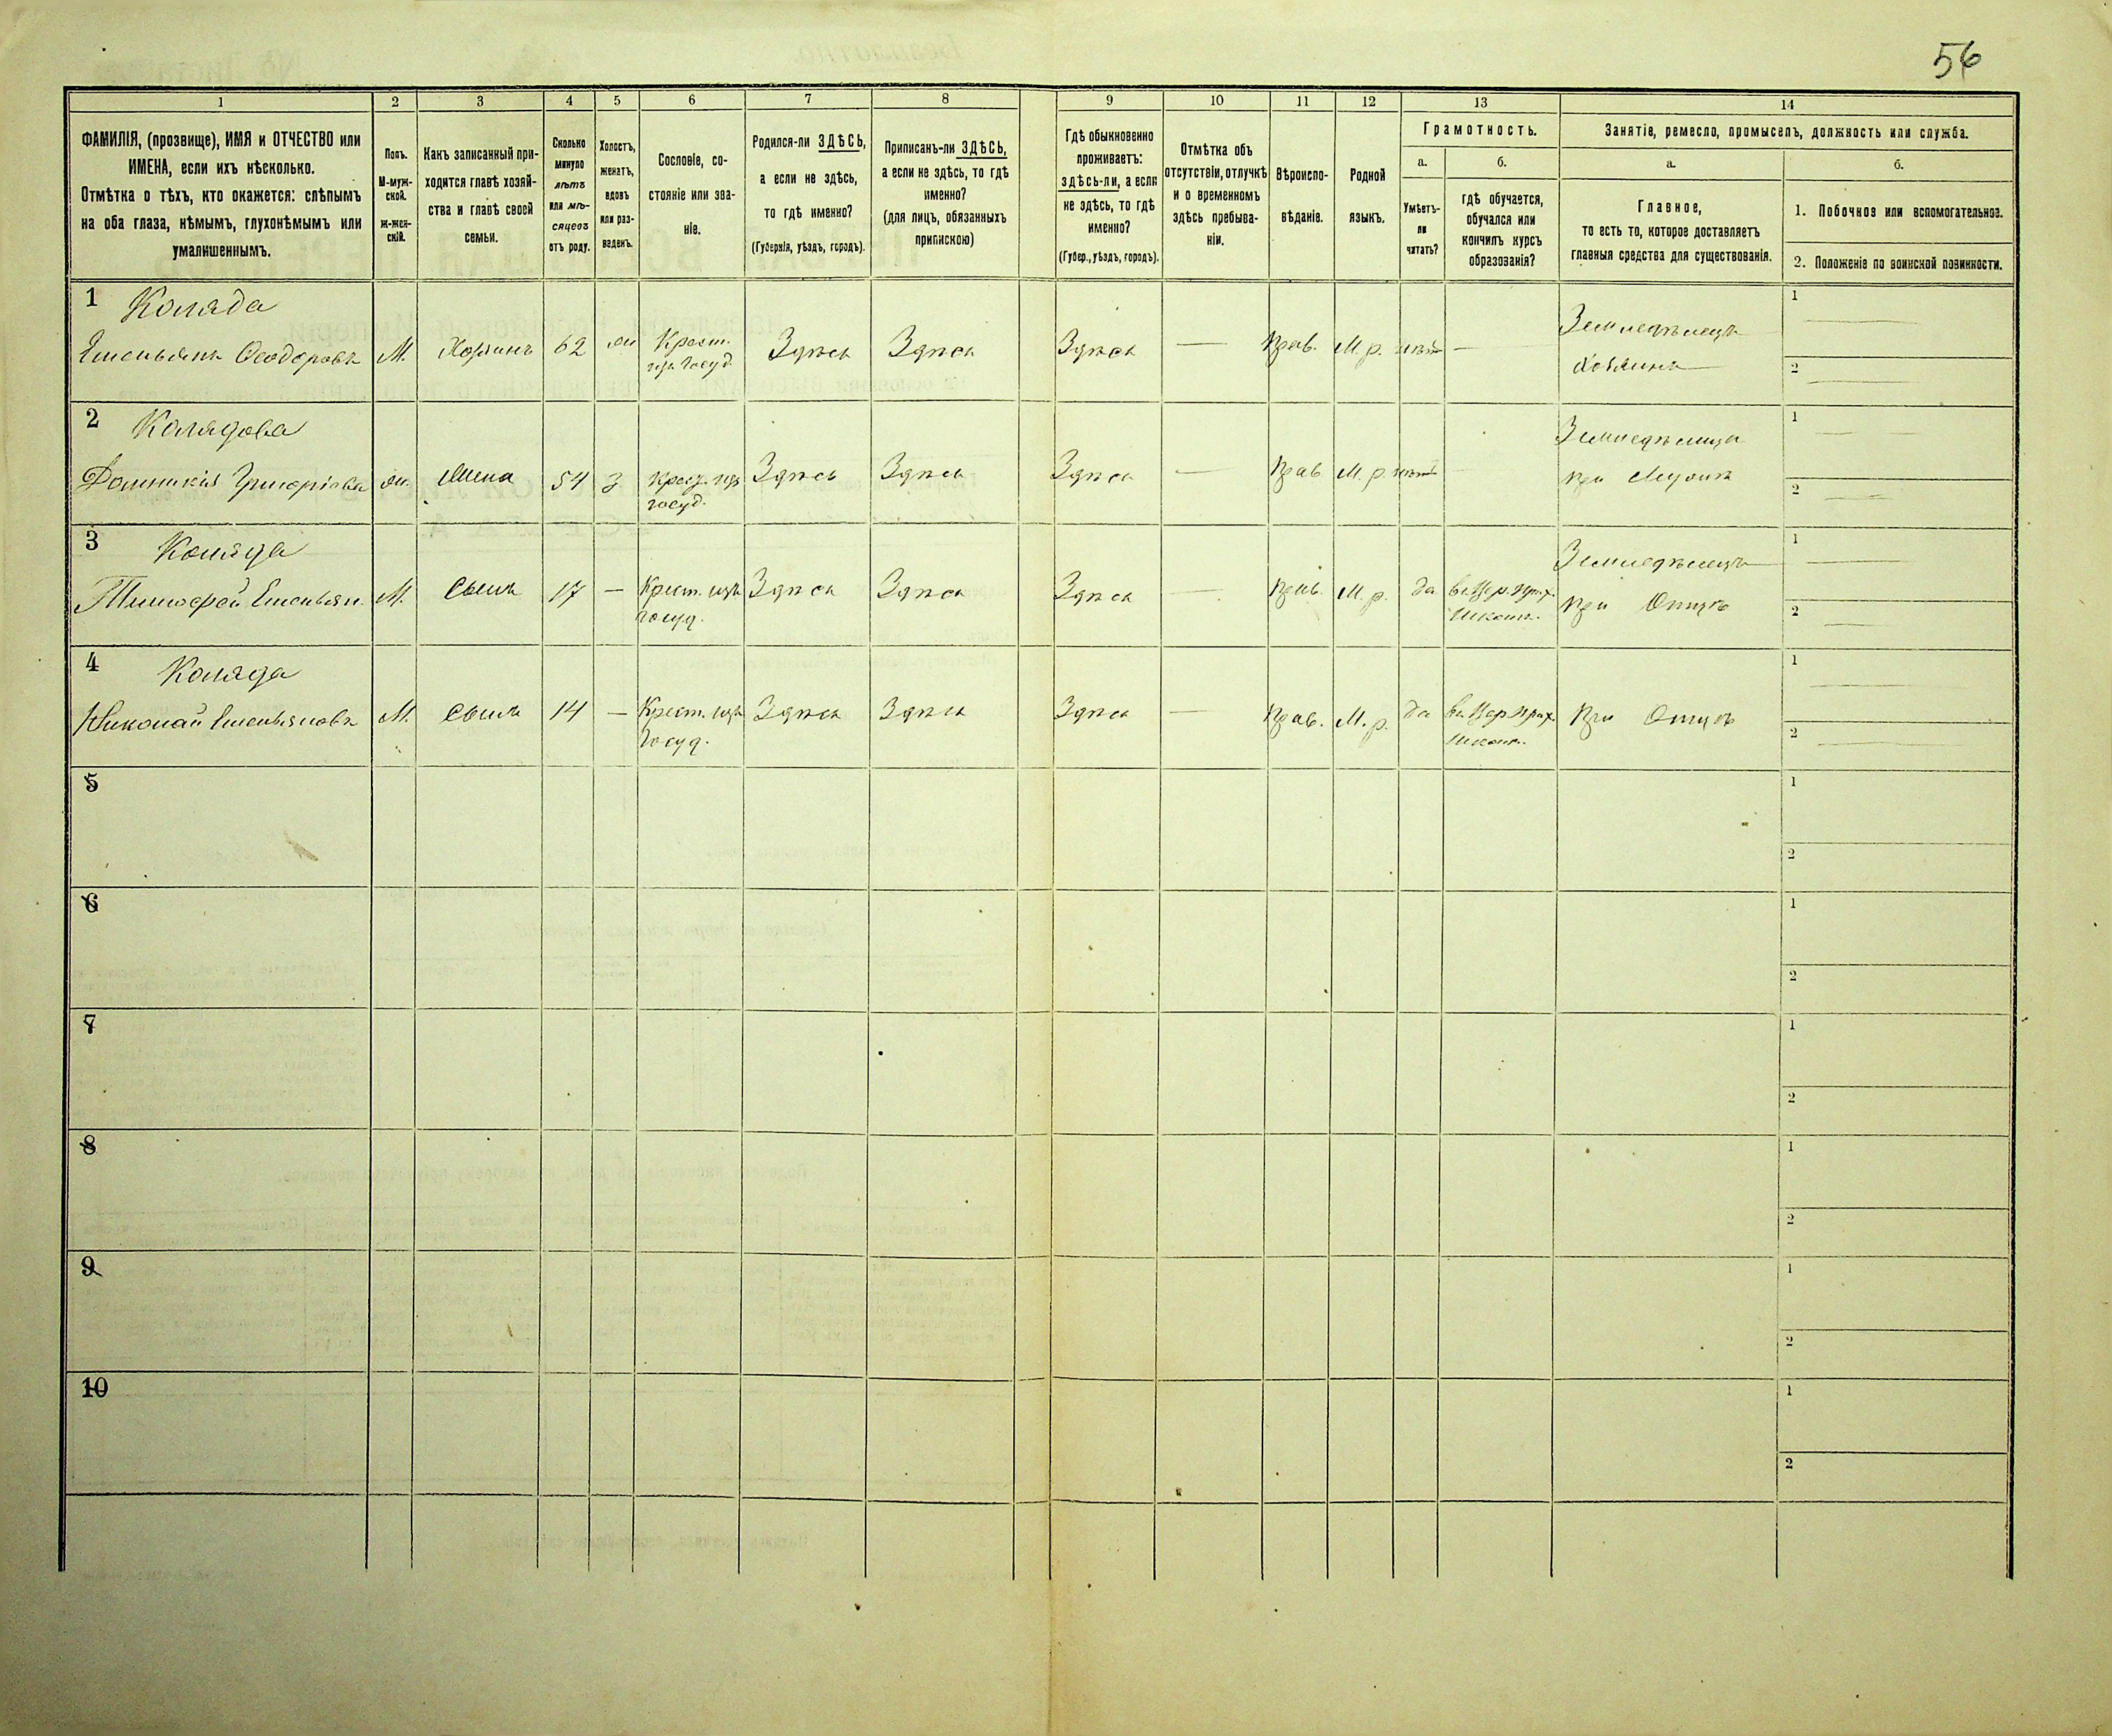 56
1 2 3 4 5 6 7 8 9 10 11 12 13 14
ФАМИЛІЯ, (прозвище), ИМЯ и ОТЧЕСТВО или
ИМЕНА, если ихъ нѣсколько.
Отмѣтка о тѣхъ, кто окажется: слѣпымъ
на оба глаза, нѣмымъ, глухонѣмымъ или
умалишеннымъ.
Полъ.
М-муж-
ской.
ж-жен-
скій.
Какъ записанный при-
ходится главѣ хозяй-
ства и главѣ своей
семьи.
Сколько
минуло
лѣтъ
или мѣ-
сяцевъ
отъ роду.
Холостъ,
женатъ,
вдовъ
или раз-
веденъ.
Сословіе, со-
стояніе или зва-
ніе.
Родился-ли ЗДѢСЬ,
а если не здѣсь,
то гдѣ именно?
(Губернія, уѣздъ, городъ).
Приписанъ-ли ЗДѢСЬ,
а если не здѣсь, то гдѣ
именно?
(для лицъ, обязанныхъ
припискою)
Гдѣ обыкновенно
проживаетъ:
здѣсь-ли, а если
не здѣсь, то гдѣ
именно?
(Губер., уѣздъ, городъ).
Отмѣтка объ
отсутствіи, отлучкѣ
и о временномъ
здѣсь пребыва-
ніи.
Вѣроиспо-
вѣданіе.
Родной
языкъ.
Грамотность.
а.
Умѣетъ-
ли
читать?
б.
гдѣ обучается,
обучался или
кончилъ курсъ
образованія?
Занятіе, ремесло, промыселъ, должность или служба.
а.
Главное,
то есть то, которое доставляетъ
главныя средства для существованія.
б.
1. Побочное или вспомогательное.
2. Положеніе по воинской повинности.
1 Коляда
Емельянъ Ѳеодоровъ М. Хозяинъ 62 ж Крест.
изъ Госуд. Здѣсь Здѣсь Здѣсь — Прав. М. р. нѣтъ —
Земледѣлецъ
Хозяинъ
1 —
2 —
2 Колядова
Домникія Григоріева ж. Жена 54 З Крест. изъ
госуд. Здѣсь Здѣсь Здѣсь — Прав М. р. нѣтъ
Земледѣлица
при Мужѣ
1 —
2 —
3 Коляда
Тимофей Емельян. М. Сынъ 17 — Крест. изъ
Госуд. Здѣсь Здѣсь Здѣсь — Прав. М. р. да въ Цер. Прих.
Школѣ.
Земледѣлецъ
при Отцѣ
1 —
2 —
4 Коляда
Николай Емельяновъ М. Сынъ 14 — Крест. изъ
Госуд. Здѣсь Здѣсь Здѣсь — Прав. М. р. да въ Цер. Прих.
Школѣ.
При Отцѣ
1 —
2 —
5
1
2
6
1
2
7
1
2
8
1
2
9
1
2
10
1
2